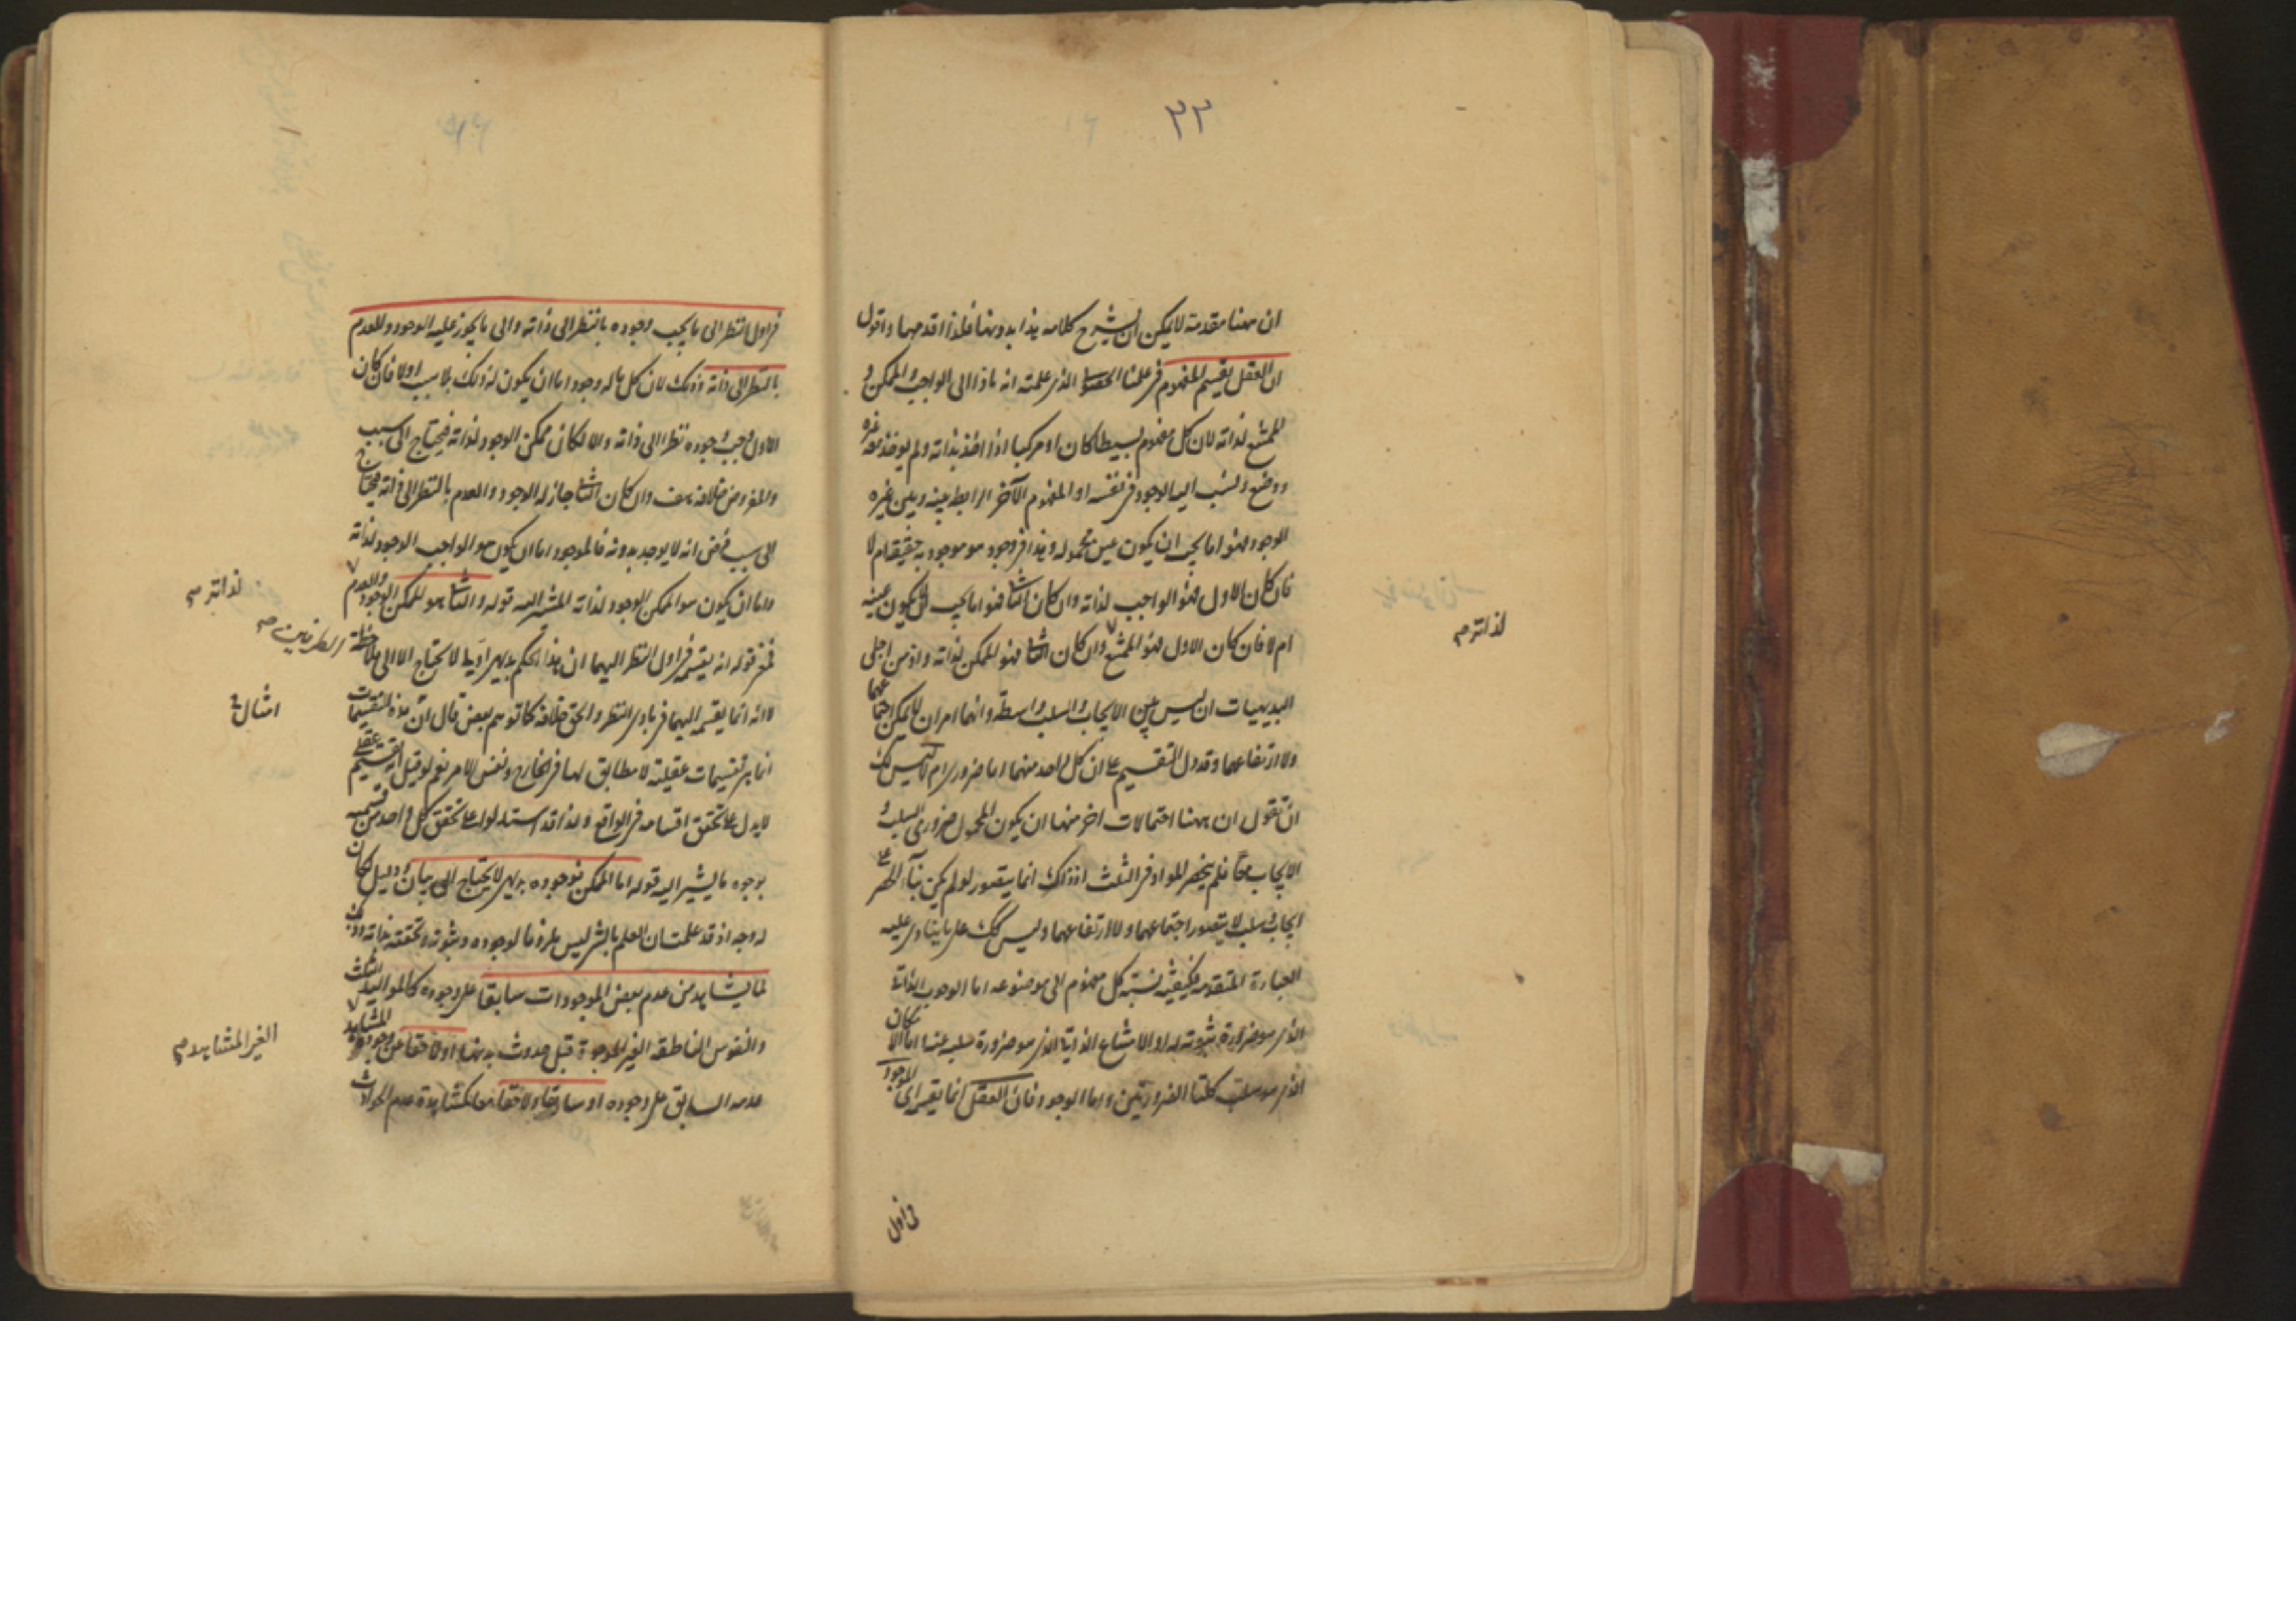 ٣٣
ان ههنا مقدمة لا يمكن ان يشرح كلامه هذا بدونها فلذا اقدمها واقول
ان العقل يقسم المفهوم في علمنا الذي علمته انه ماذا الى الواجب والممكن و
الممتنع لذاته لان كل مفهوم بسيطا كان او مركبا اذا اخذ بذاته ولم يوخذ معه غيره
ووضع ونسب اليه الوجود في نفسه او المفهوم الآخر الرابط بينه وبين غيره
الوجود فهو اما يجب ان يكون عين محموله وبذا في وجود هو موجود به حقيقة ام لا
فان كان الاول فهو الواجب لذاته وان كان الثانى فهو اما يجب ان لا يكون عينه
ام لا فان كان الاول فهو الممتنع وان كان الثانى فهو الممكن لذاته واذ من اجلى
لذاته صح
البديهيات ان ليس بين الايجاب والسلب واسطة وانهما امران لا يمكن اجتماعهما
ولا ارتفاعهما وقد دل التقسيم على ان كل واحد منهما اما ضرورى ام لا ليس لك
ان تقول ان ههنا احتمالات اخر منها ان يكون المحمول ضرورى السلب و
الايجاب معا فلم ينحصر المواد في الثلث اذ ذلك انما يتصور لو لم يكن بناء الحصر على
ايجاب وسلب لا يتصور اجتماعهما ولا ارتفاعهما وليس كك على ما ينادى عليه
العبارة المتقدمة فكيفية نسبة كل مفهوم الى موضوعه اما الوجوب الذاتى
الذى هو ضرورة ثبوته له او الامتناع الذاتى الذى هو ضرورة سلبه عنه اما الامكان
الذى هو سلب كلتا الضرورتين واما الوجود فان العقل انما يقسم اى الموجود
في اول
في اول النظر الى ما يجب وجوده بالنظر الى ذاته والى ما يجوز عليه الوجود والعدم
بالنظر الى ذاته وذلك لان كل ما له وجود اما ان يكون له ذلك بلا سبب اولا فان كان
الاول وجب وجوده نظرا الى ذاته والا لكان ممكن الوجود لذاته فيحتاج الى سبب
والمفروض خلافه هف وان كان الثانى جاز له الوجود والعدم بالنظر الى ذاته فيحتاج
الى سبب فرض انه لا يوجد بدونه فالموجود اما ان يكون هو الواجب الوجود لذاته
واما ان يكون هو الممكن الوجود لذاته المشير اليه قوله والثانى هو الممكن الوجود والعدم
لذاته صح
فمغز قوله انه يقسم في اول النظر اليهما ان هذا الحكم بديهى اولى لا يحتاج الا الى ملاحظة
الطرفين صح
لا انه انما يقسم اليهما في بادى النظر والحق خلافه كما توهم بعض قال ان هذه التقسيمات
امثال
انما هى تقسيمات عقلية لا مطابق لها في الخارج ونفس الامر نعم لو قيل ان تقسيم عقلى
لا يدل على تحقق اقسامه في الواقع ولذا قد استدلوا على تحقق كل واحد من قسميه
بوجوه ما يشير اليه قوله اما الممكن فوجوده بديهى لا يحتاج الى بيان ودليل كان
له وجه اذ قد علمت ان العلم بالشىء ليس ملزوما لوجوده وثبوته وتحققه بذاته
لما يشاهد من عدم بعض الموجودات سابقا على وجوده كالمواليد الثلث
والنفوس الناطقة الغير الموجودة قبل حدوث بدنها او لاحقا عن وجوده المشاهد
الغير المشاهد صح
عدمه السابق على وجوده او سابقا ولاحقا معا كمشاهدة عدم الحوادث